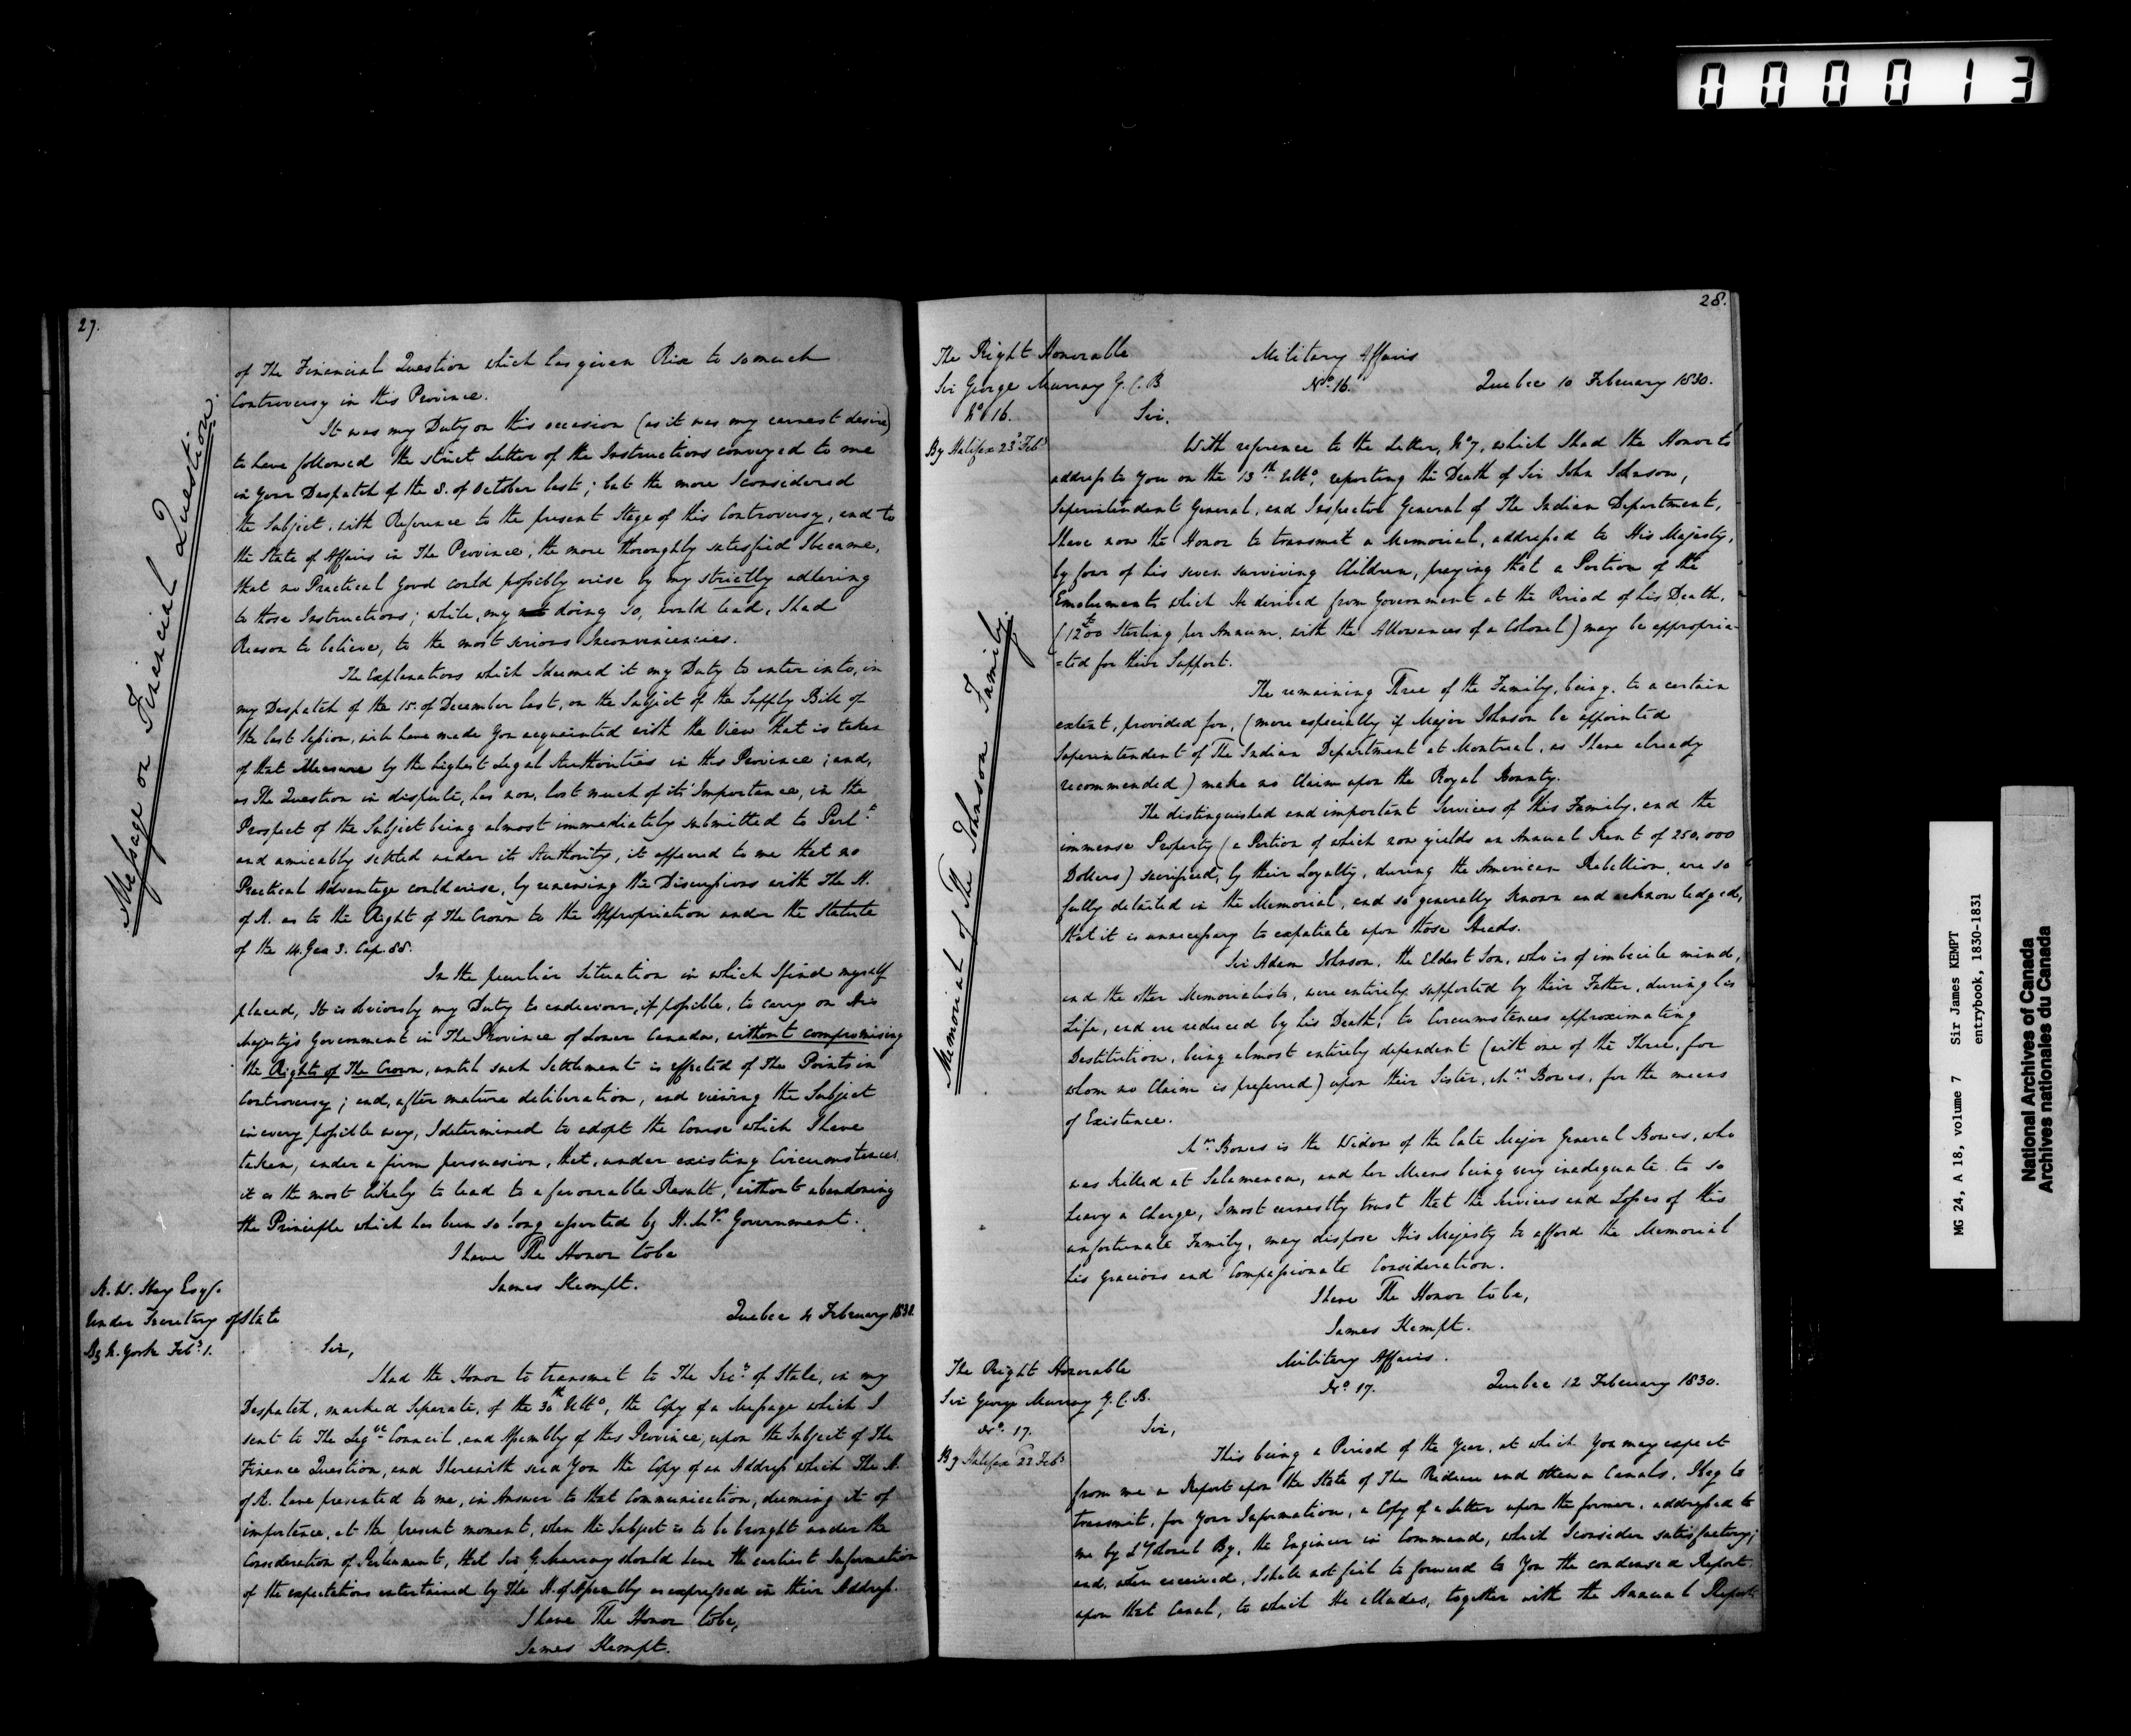 000013
27.
Message on Financial Question.
of The Financial Question which has given Rise to so much
Controversy in this Province.
It was my Duty on this occasion (as it was my earnest desire)
to have followed the strict Letter of the Instructions conveyed to me
in Your Despatch of the 8. of October last; but the more I considered
the Subject, with Reference to the present Stage of this Controversy, and to
the State of Affairs in The Province, the more thoroughly satisfied I became,
that no Practical Good could possibly arise by my strictly adhering
to those Instructions; while, my doing so, would lead, I had
Reason to believe, to the most serious Inconveniencies.
The Explanations which I deemed it my Duty to enter into, in
my Despatch of the 15. of December last, on the Subject of the Supply Bill of
the last Session, will have made You acquainted with the View that is taken
of that Measure by the highest Legal Authorities in this Province; and,
as The Question in dispute, has now, lost much of its Importance, in the
Prospect of the Subject being almost immediately submitted to Parlt
and amicably settled under its Authority, it appeared to me that no
Practical Advantage could arise, by renewing the Discussions with The H.
of A. as to the Right of The Crown to the Appropriation under the Statute
of the 14. Geo 3. Cap. 88.
In the peculiar Situation in which I find myself
placed, It is obviously my Duty to endeavour, if possible, to carry on His
Majesty's Government in The Province of Lower Canada, without compromising
the Rights of The Crown, until such Settlement is effected of The Points in
Controversy; and, after mature deliberation, and viewing the Subject
in every possible way, I determined to adopt the Course which I have
taken, under a firm persuasion, that, under existing Circumstances,
it is the most likely to lead to a favourable Result, without abandoning
the Principle which has been so long asserted by H. M's. Government.
I have The Honor to be
James Kempt.
R. W. Hay Esqr.
Under Secretary of State
By N. York Feby.
Quebec 4 February 1830.
Sir,
I had the Honor to transmit to The Secy of State, in my
Despatch, marked Separate, of the 30th Ulto, the Copy of a Message which I
sent to The Legve Council, and Assembly of this Province, upon the Subject of The
Finance Question, and I herewith send You the Copy of an Address which The H.
of A. have presented to me, in Answer to that Communication, deeming it of
importance, at the present moment, when the Subject is to be brought under the
Consideration of Parliament, that Sir G. Murray should have the earliest Information
of the expectations entertained by The H. of Assembly as expressed in their Address.
I have The Honor to be,
James Kempt.
28.
Memorial of The Johnson Family.
The Right Honorable
Sir George Murray G.C.B
No 16.
By Halifax 23d Feby
Military Affairs
No. 16.
Quebec 10 February 1830.
Sir,
With reference to the Letter, No 7, which I had the Honor to
address to You on the 13th Ulto, reporting the Death of Sir John Johnson,
Superintendent General, and Inspector General of The Indian Department,
I have now the Honor to transmit a Memorial, addressed to His Majesty,
by four of his seven surviving Children, praying that a Portion of the
Emoluments which He derived from Government at the Period of his Death,
(£1200 Sterling per Annum, with the Allowances of a Colonel) may be appropria-
=ted for their Support.
The remaining Three of the Family, being, to a certain
extent, provided for, (more especially if Major Johnson be appointed
Superintendent of The Indian Department at Montreal, as I have already
recommended) make no Claim upon the Royal Bounty.
The distinguished and important Services of this Family, and the
immense Property (a Portion of which now yields an Annual Rent of 250,000
Dollars) sacrificed, by their Loyalty, during the American Rebellion, are so
fully detailed in the Memorial, and so generally Known and acknowledged,
that it is unnecessary to expatiate upon those Heads.
Sir Adam Johnson, the Eldest Son, who is of imbecile mind,
and the other Memorialists, were entirely supported by their Father, during his
Life, and are reduced by his Death, to Circumstances approximating
Destitution, being almost entirely dependent (with one of the Three, for
whom no Claim is preferred) upon their Sister, Mrs Bowes, for the means
of Existence.
Mrs Bowes is the Widow of the late Major General Bowes, who
was Killed at Salamanca, and her Means being very inadequate to so
heavy a Charge, I most earnestly trust that the Services and Losses of this
unfortunate Family, may dispose His Majesty to afford the Memorial
his gracious and Compassionate Consideration.
I have The Honor to be,
James Kempt.
The Right Honorable
Sir George Murray G.C.B.
No. 17.
By Halifax 23 Feby
Military Affairs.
No. 17.
Quebec 12 February 1830.
Sir,
This being a Period of the Year, at which You may expect
from me a Report upon the State of The Rideau and Ottawa Canals, I beg to
transmit, for Your Information, a Copy of a Letter upon the former, addressed to
me by Lt Colonel By, the Engineer in Command, which I consider satisfactory;
and, when received, I shall not fail to forward to You the condensed Report
upon that Canal, to which He alludes, together with the Annual Reports
MG 24, A 18, volume 7 Sir James KEMPT
entrybook, 1830-1831
National Archives of Canada
Archives nationales du Canada